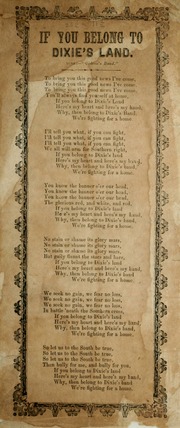 IF YOU BELONG TO
DIXIE'S LAND.
To bring you this good news I've come,
To bring you this good news I've come,
To bring you this good news I've come,
You'll always find you self at home.
If you belong to Dixie's Land
Here's my heart and here's my hand,
Why, then belong to Dixie's Land.
We're fighting for a home
I'll tell you what, if you can fight,
I'll tell you what, if you can fight,
I'll tell you what, if you can fight,
We all will arm for Southern
If you belong to Dixie's land
Here's my heart and here's my hand,
Why, then belong to Dixie's land.
We're fighting for a home.
You know the banner o'er our head,
You know the banner o'er our head,
You know the banner o'er our head,
The glorious red, and white, and red,
If you belong to Dixie's land
Here's my heart and here's my hand
Why, then belong to Dixie's land.
We're fighting for a home.
No stain or shame its glory mars,
No stain or shame its glory mars,
No stain or shame its glory mars,
But gaily flaunt the stars and bars,
If you belong to Dixie's land
Here's my heart and here's my hand
Why, then belong to Dixie's land.
We're fighting for a home
We seek no gain, we fear no loss,
We seek no gain, we fear no loss,
We seek no gain, we fear no loss,
In battle 'neath the Southern cross,
If you belong to Dixie's land
Here's my heart and here's my hand,
Why, then belong to Dixie's land.
We're fighting for a home.
So let us to the South be true,
So let us to the South be true,
So let us to the South be true,
Then bully for me, and bully for you,
If you belong to Dixie's land
Here's my heart and here's my hand
Why, then belong to Dixie's land.
We're fighting for a home.